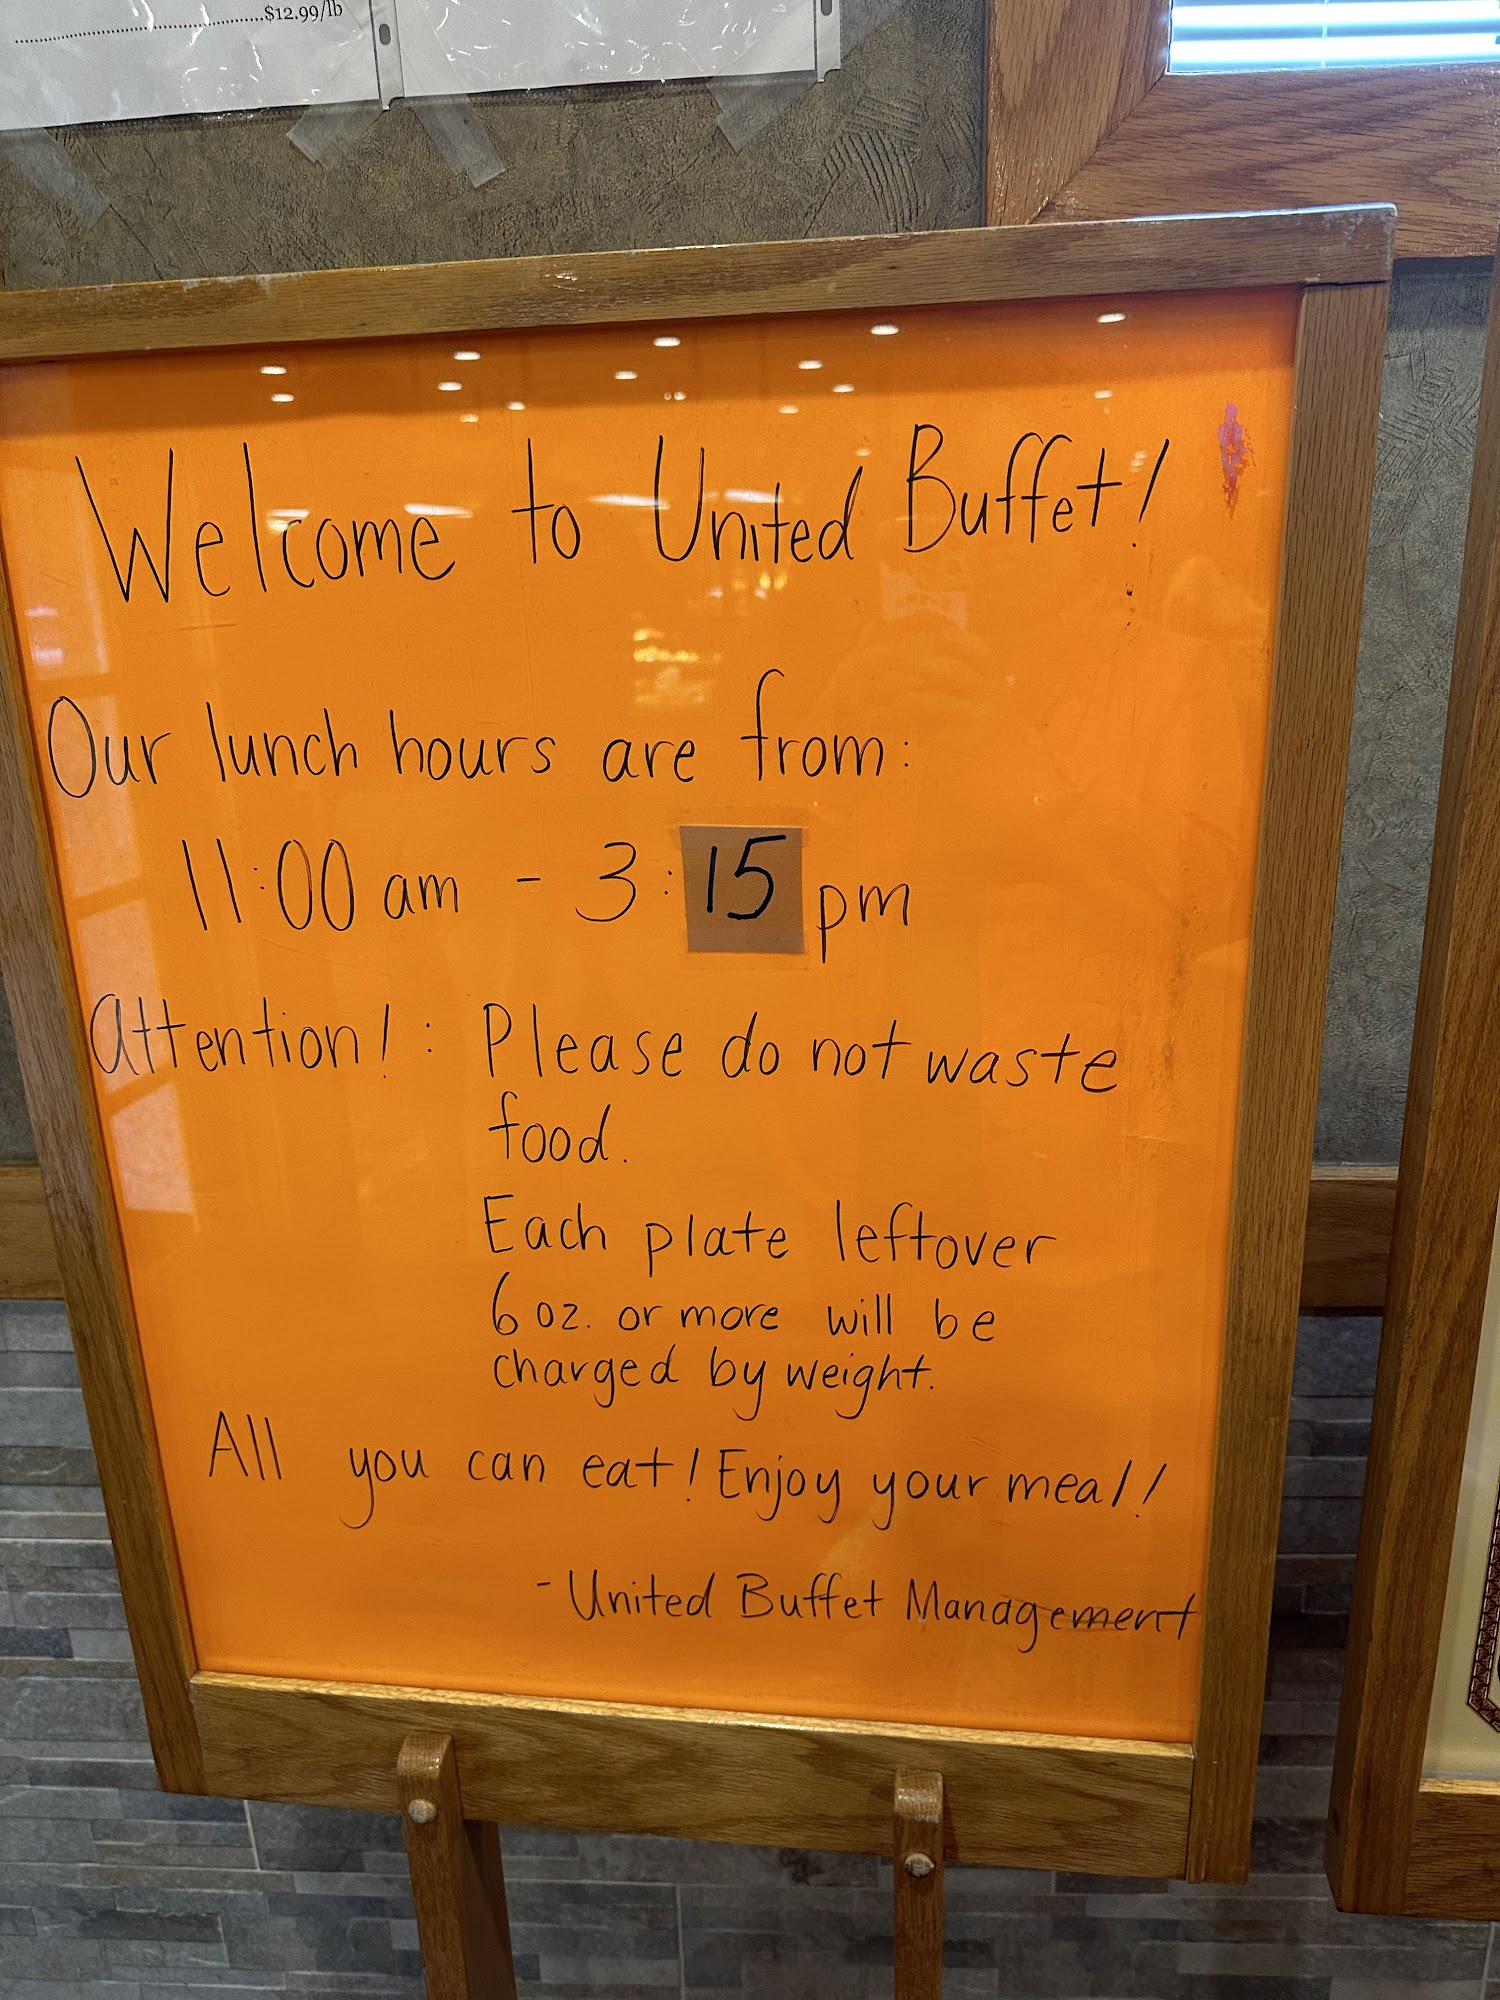 ..............................$12.99/lb
Welcome to United Buffet!
Our lunch hours are from:
11:00 am - 3:15 pm
Attention!: Please do not waste
food.
Each plate leftover
6 oz. or more will be
charged by weight.
All you can eat! Enjoy your meal!
- United Buffet Management